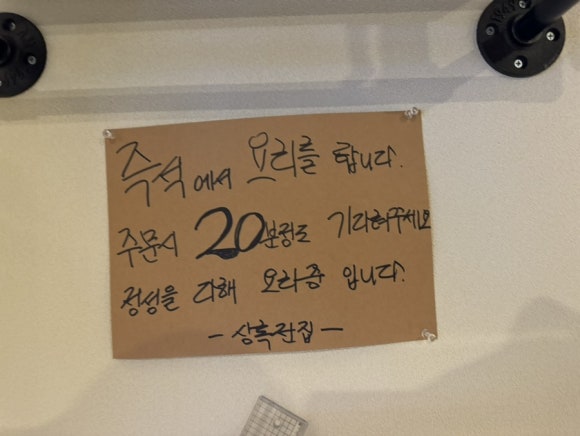 즉석에서 요리를 합니다.
주문시 20분정도 기다려주세요
정성을 다해 요리중 입니다.
- 상혹전집 -